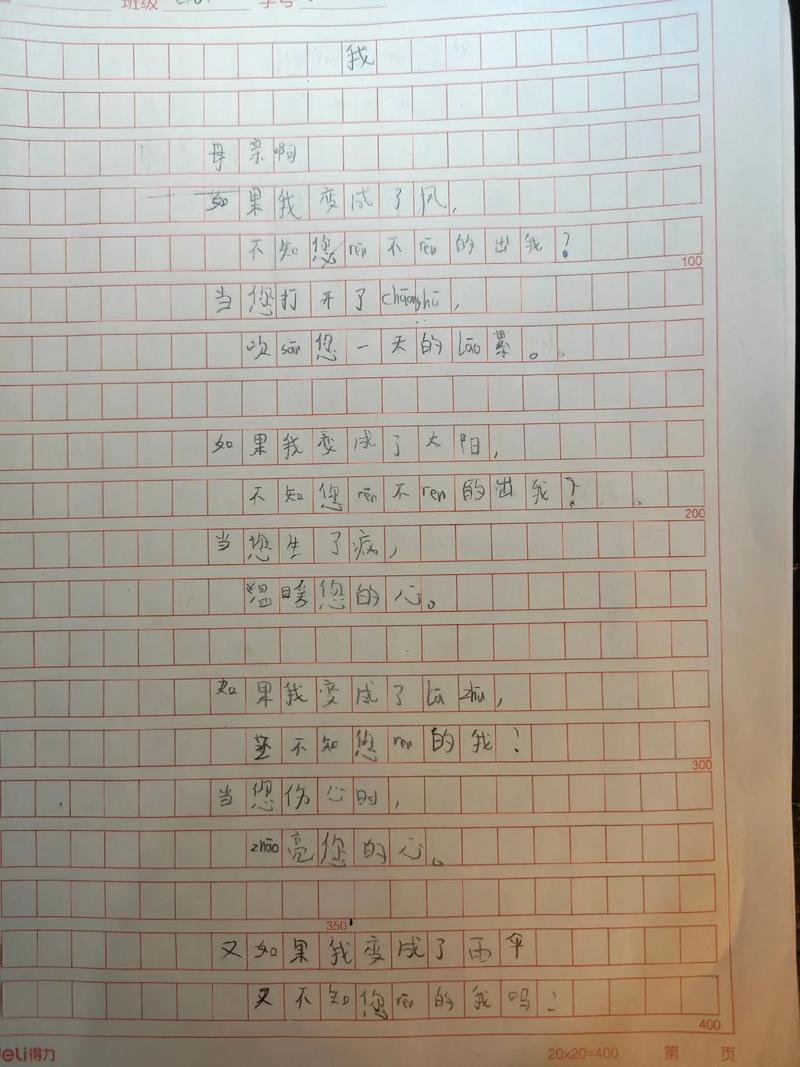 班级
学号
我
母亲啊
如果我变成了风，
不知您rēn不rēn的出我？
当您打开了chāonghū，
吹sàn您一天的Láo累。
100
如果我变成了太阳，
不知您rēn不rēn的出我？
200
当您生了病，
温暖您的心。
如果我变成了Lù zhū，
不知您rēn的我？
300
当您伤心时，
zhāo亮您的心。
350
又如果我变成了雨伞
又不知您rēn的我吗？
400
deli得力
20x20=400
第 页